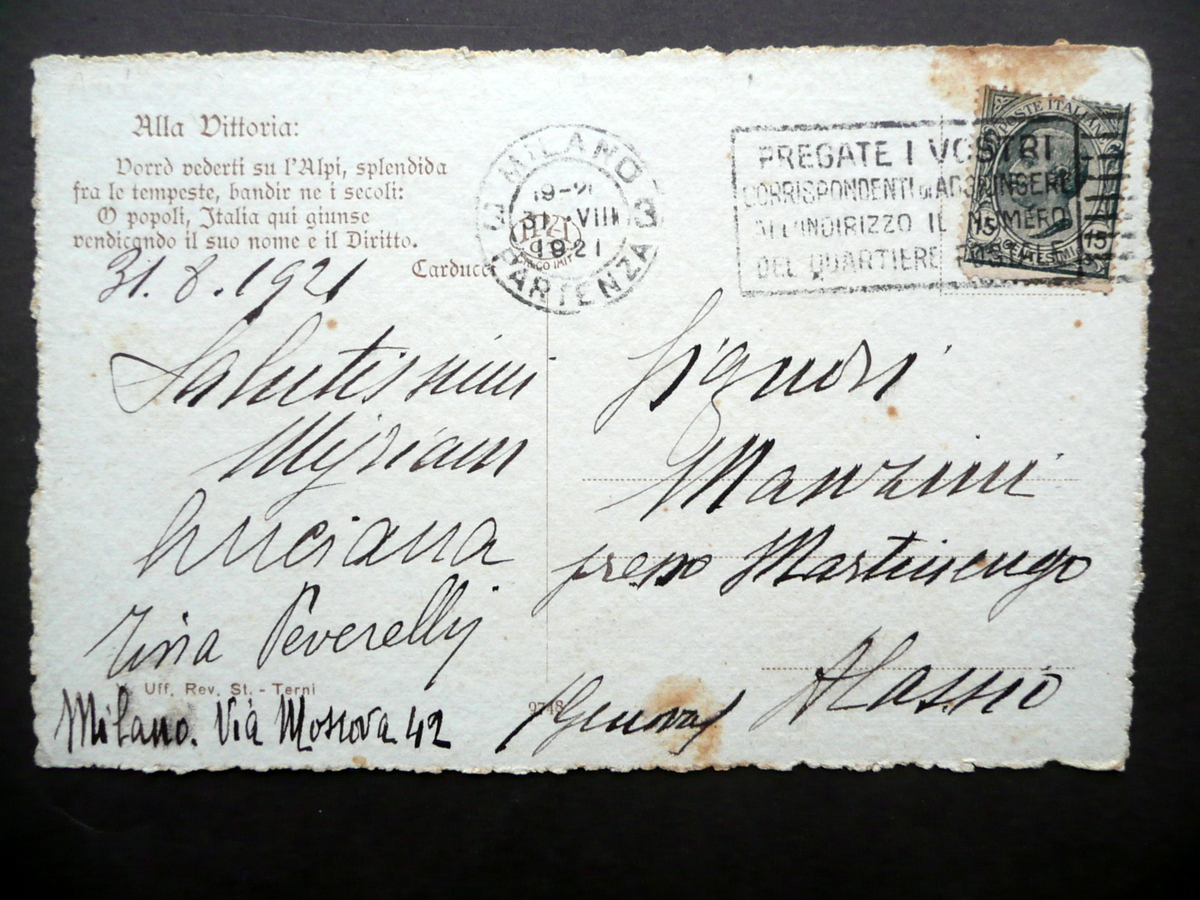 Alla Vittoria:
Vorrò vederti su l'Alpi, splendida
fra le tempeste, bandir ne i secoli:
O popoli, Italia qui giunse
vendicando il suo nome e il Diritto.
Carducci
MILANO
19-21
31 VIII
1921
PARTENZA
PREGATE I VOSTRI
CORRISPONDENTI di AGGIUNGERE
ALL'INDIRIZZO IL NUMERO
DEL QUARTIERE POSTALE
POSTE ITALIANE
15 CENTESIMI 15
31.8.1921
Salutissimi
Myriam
Luciana
Tina Peverelly
Uff. Rev. St. - Terni
Milano. Via Moscova 42
9748
Signori
Manzini
presso Martinengo
Alassio
(Genova)